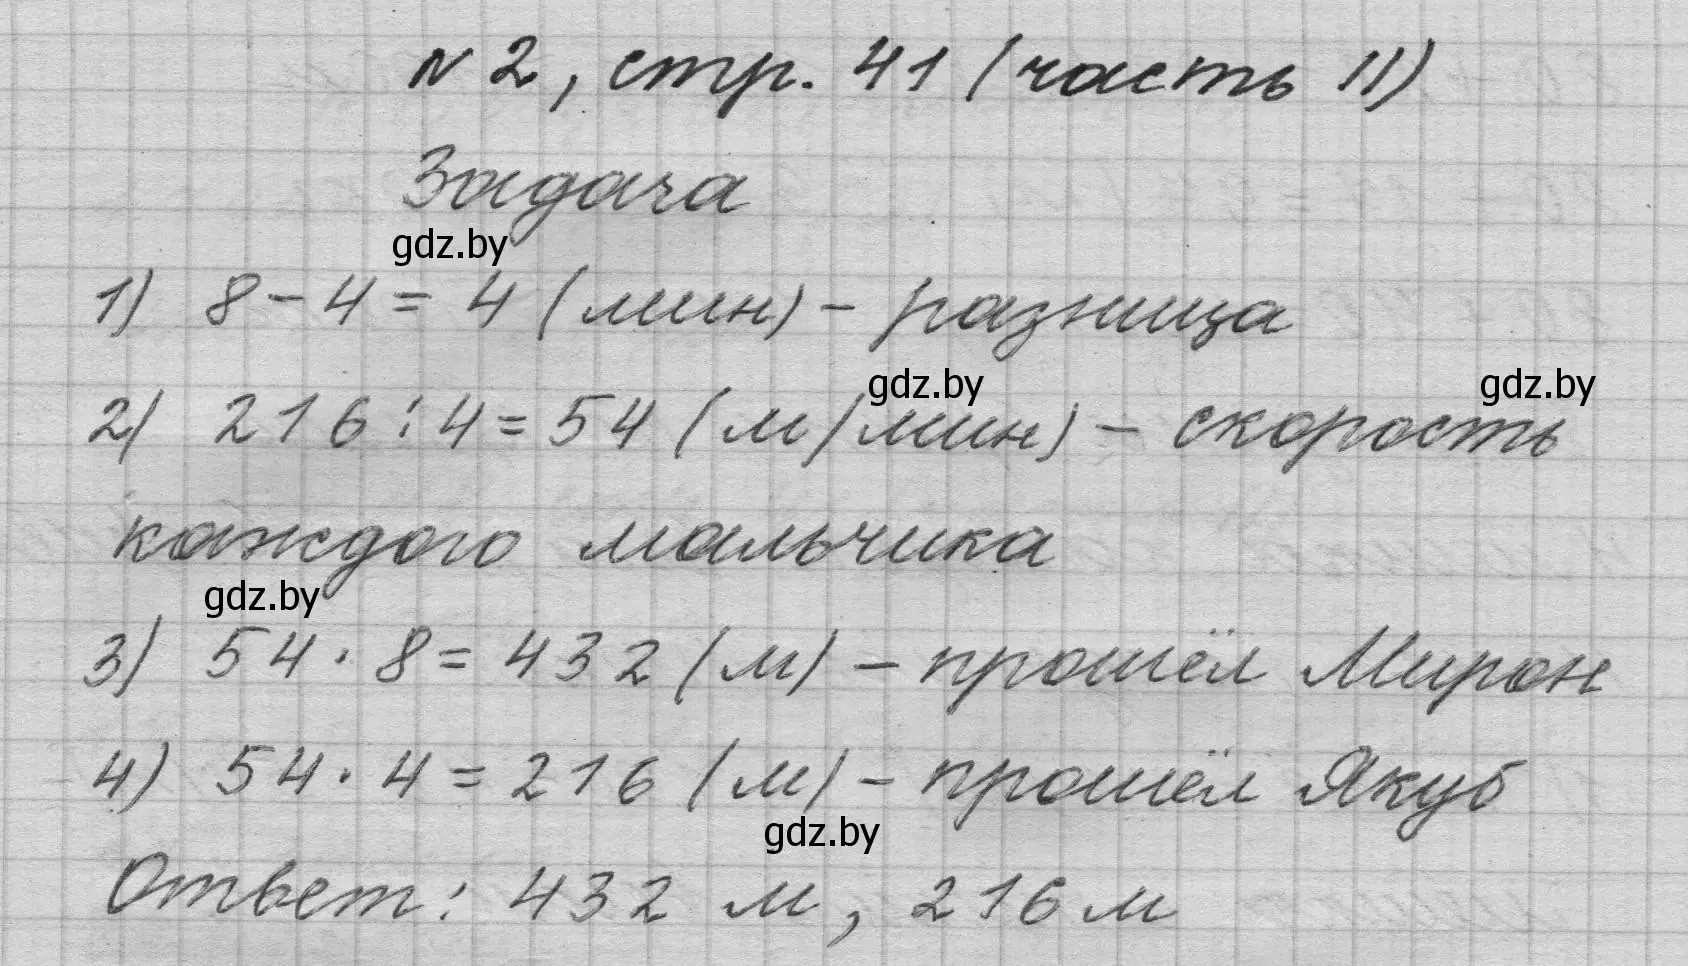 № 2, стр. 41 (часть II)
Задача
gdz.by
1) 8 - 4 = 4 (мин) - разница
gdz.by gdz.by
2) 216 : 4 = 54 (м/мин) - скорость
каждого мальчика
gdz.by
3) 54 · 8 = 432 (м) - прошёл Мирон
4) 54 · 4 = 216 (м) - прошёл Якуб
gdz.by
Ответ: 432 м, 216 м